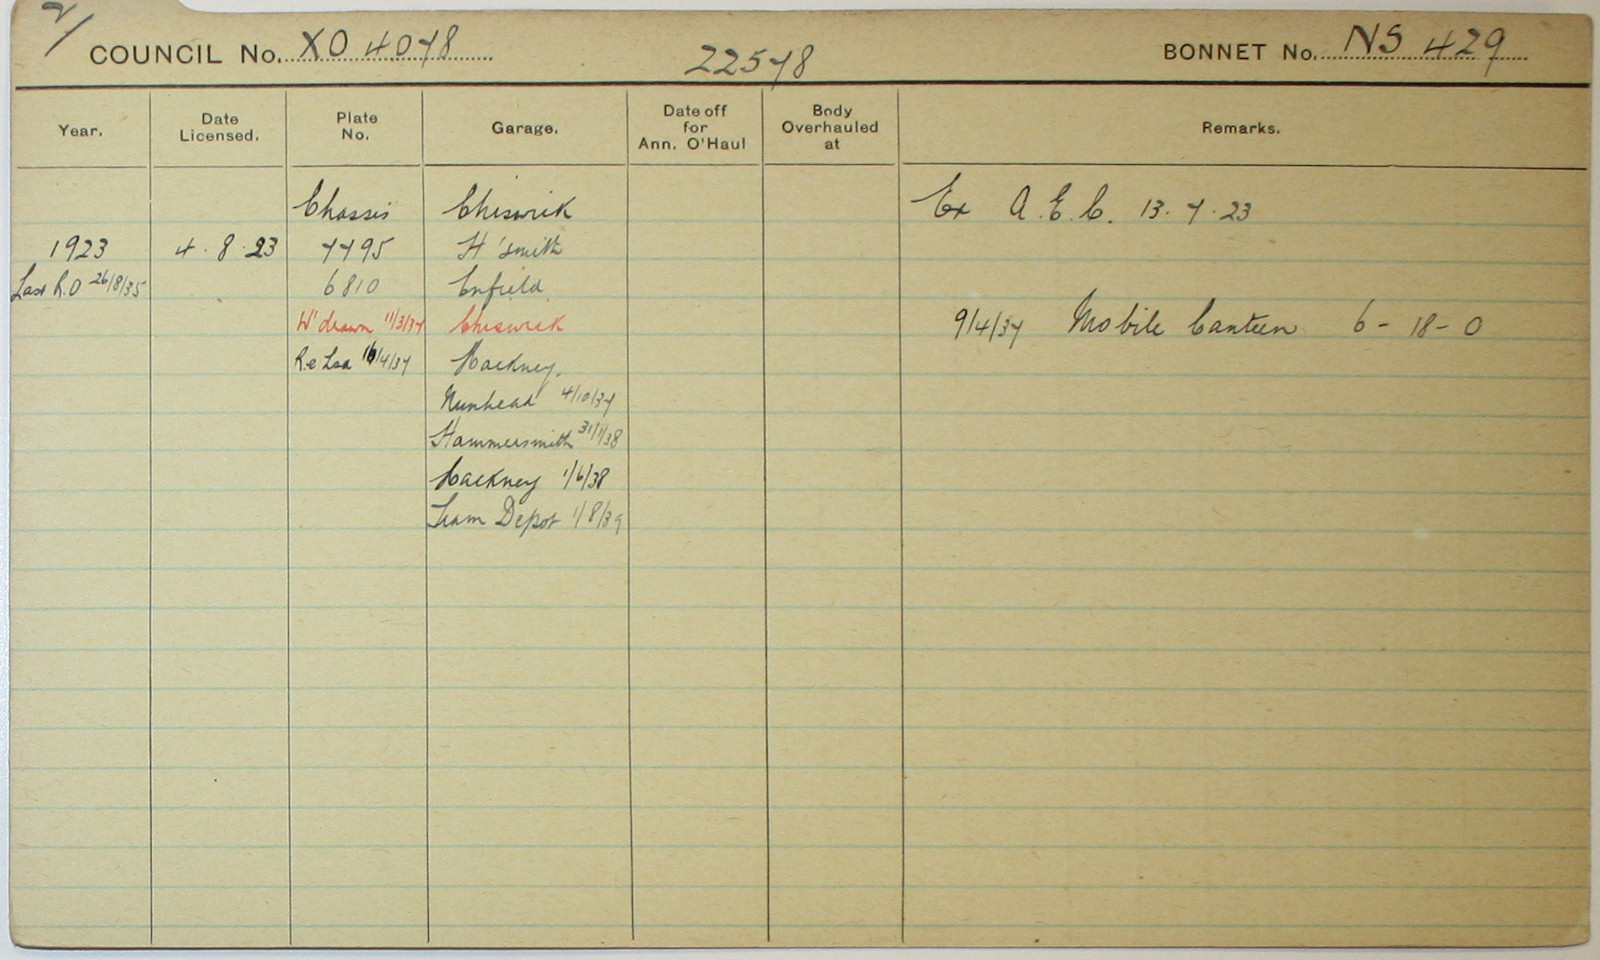 2/
COUNCIL No. XO 4078 22578 BONNET No. NS 429
Year. Date Licensed. Plate No. Garage. Date off for Ann. O'Haul Body Overhauled at Remarks.
Chassis Chiswick Ex A.E.C. 13.7.23
1923 4.8.23 7795 H'smith
Last R.O 26/8/35 6810 Enfield
W'drawn 11/3/37 Chiswick 9/4/37 Mobile Canteen 6-18-0
Re Lsd /4/37 Hackney.
Nunhead 4/10/37
Hammersmith 31/1/38
Hackney 1/6/38
Tram Depot 1/8/39